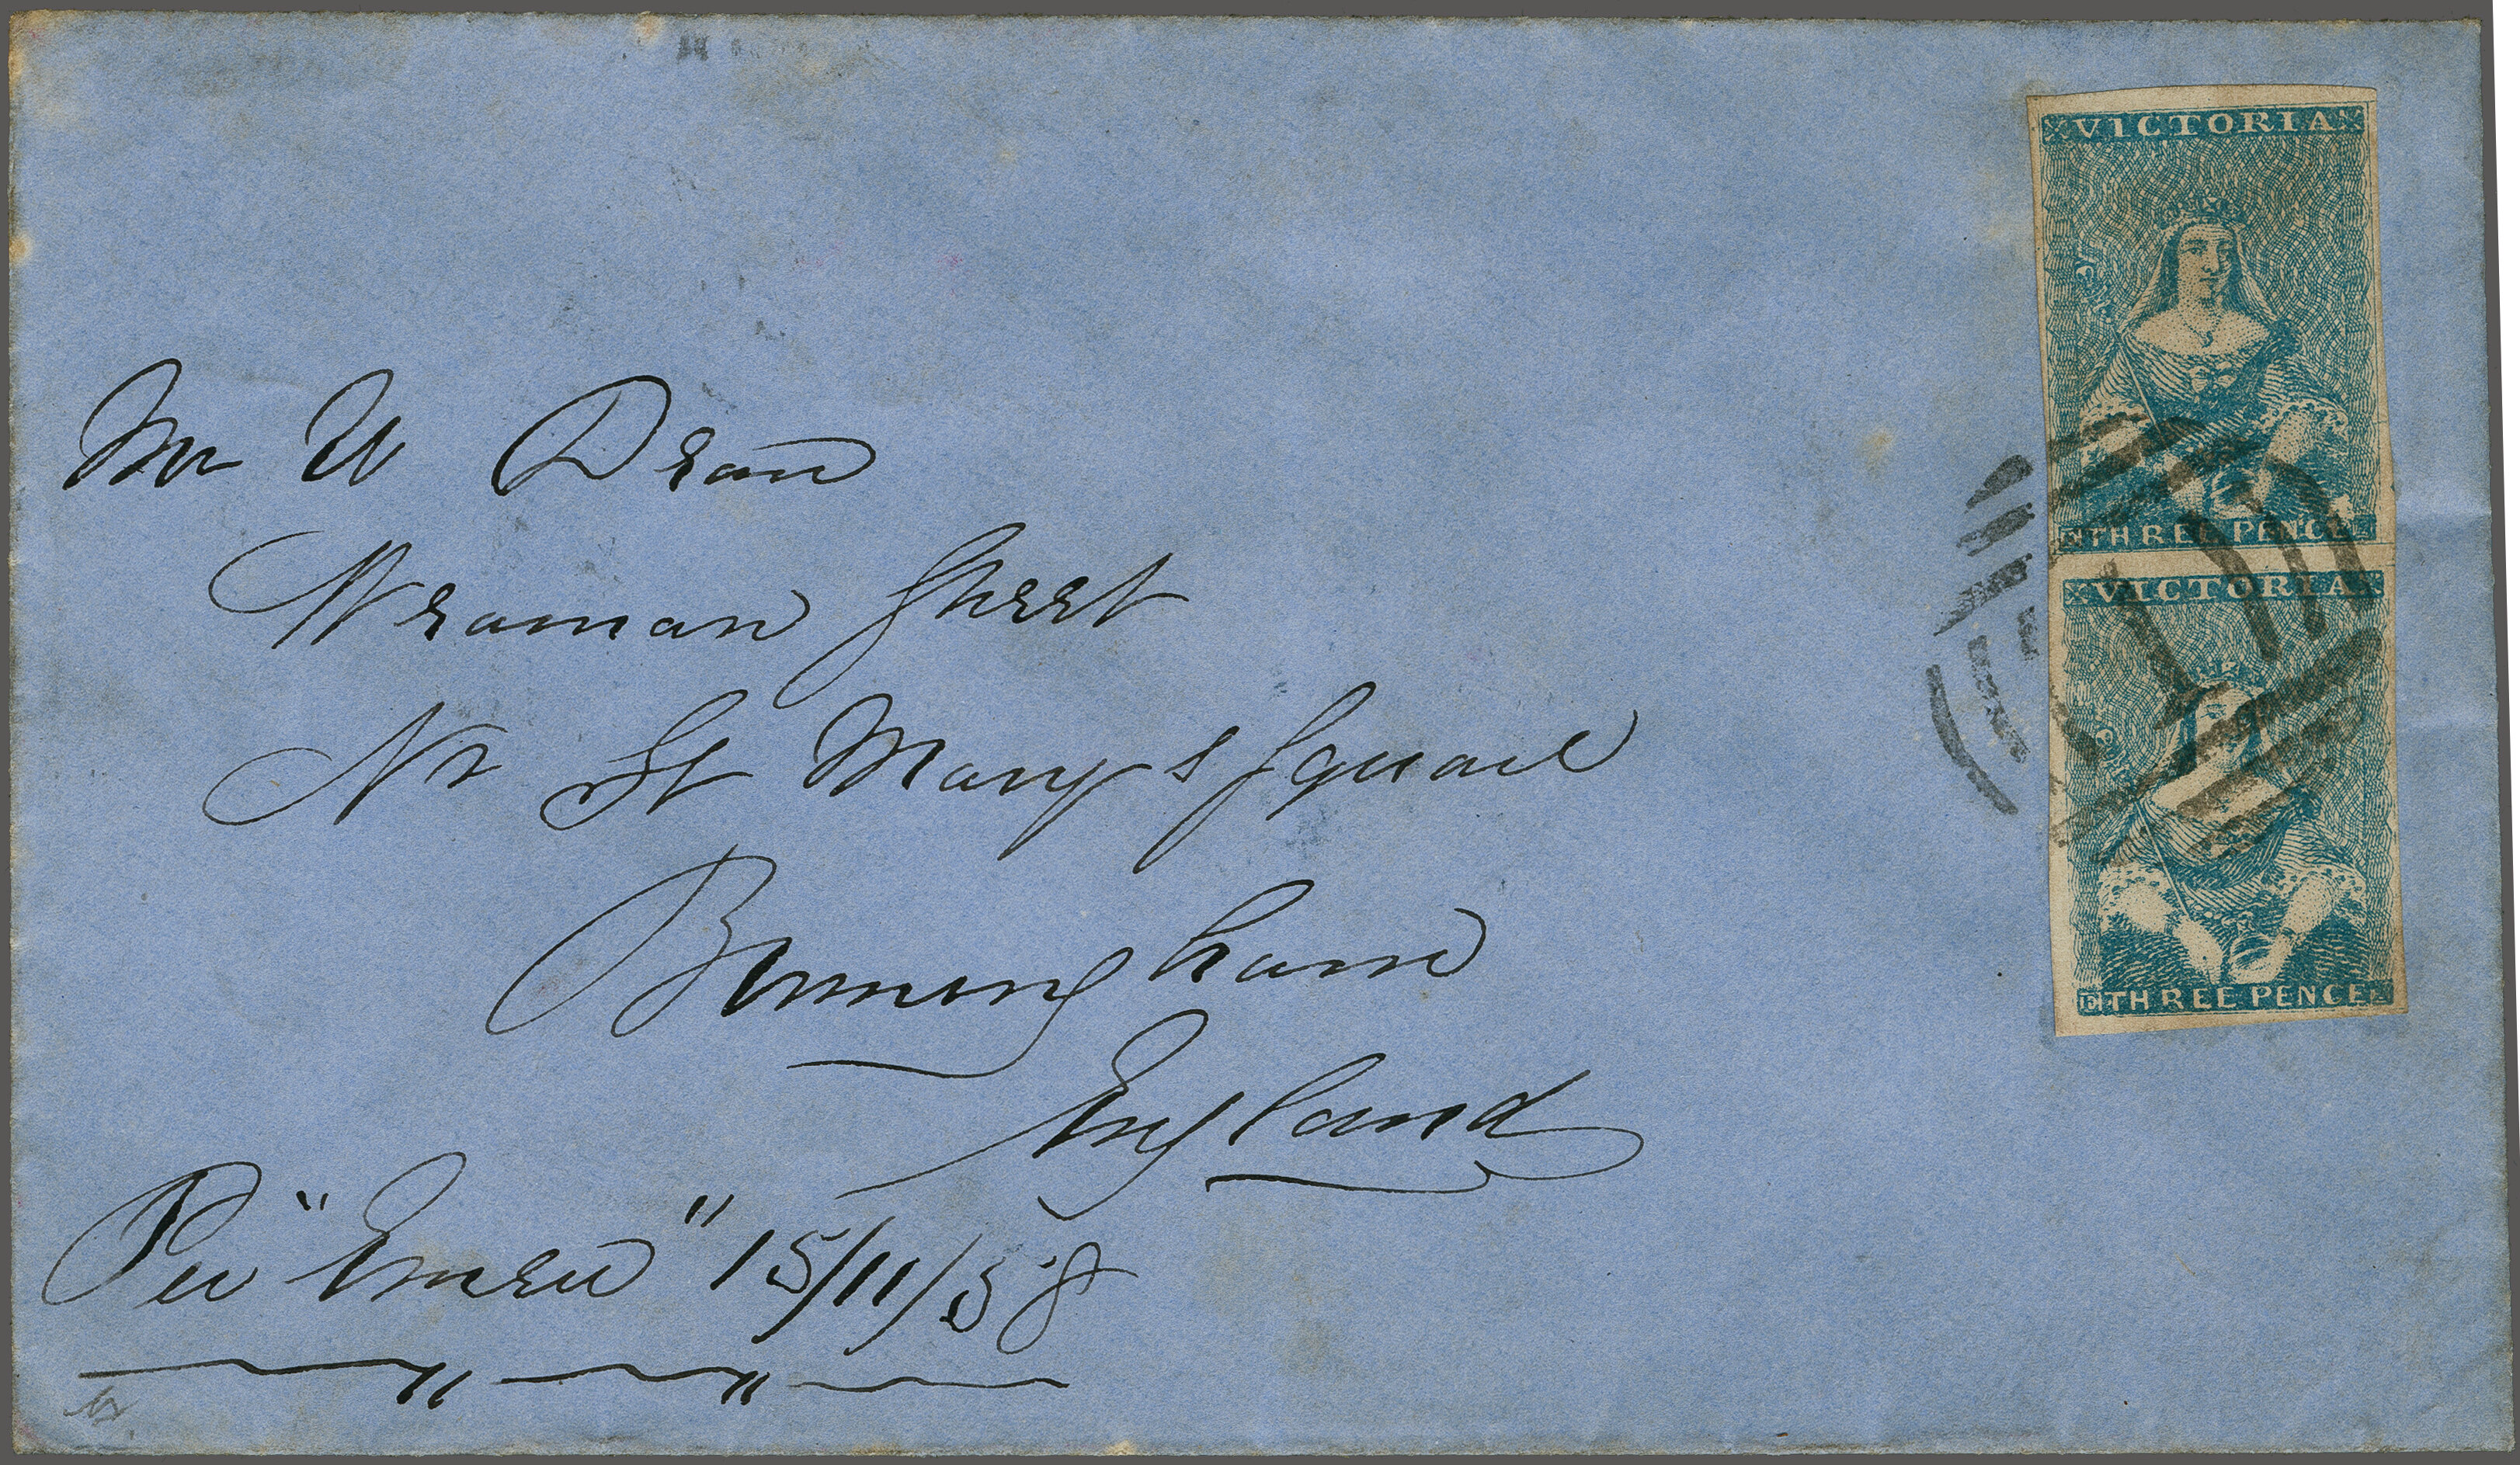 VICTORIA
THREE PENCE
VICTORIA
THREE PENCE
1
Mr W Dean
Weaman Street
Nr St Marys Square
Birmingham
England
Per "Emeu" 15/11/58